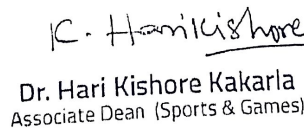 K. Harikishore
Dr. Hari Kishore Kakarla
Associate Dean (Sports & Games)